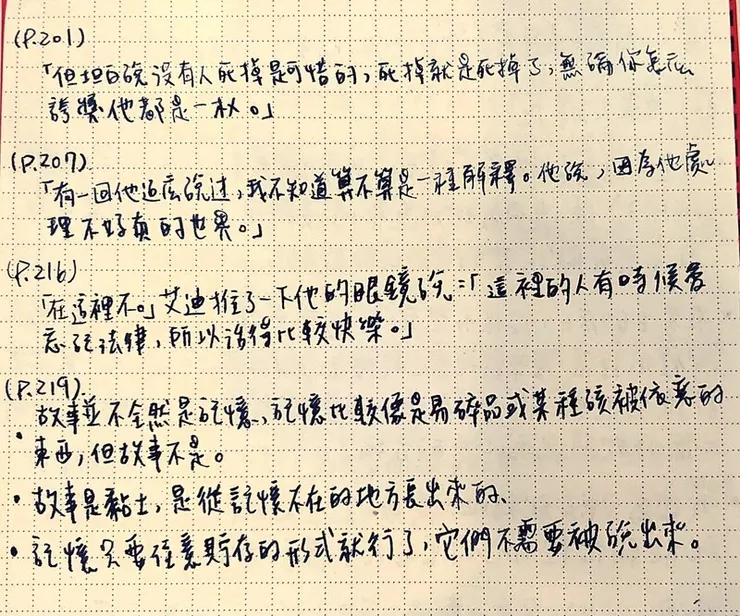 (P.201)
「但坦白說沒有人死掉是可惜的,死掉就是死掉了,無論你怎么
誇獎他都是一杦。」
(P.207)
「有一回他這麼說过,我不知道算不算是一種解釋。他說,因為他處
理不好真的世界。」
(P.216)
「在這裡不。」艾迪推了一下他的眼鏡說:「這裡的人有時候會
忘記法律,所以活得比較快樂。」
(P.219)
故事並不全然是記憶、記憶比較像是易碎品或某種該被依戀的
東西,但故事不是。
• 故事是黏土,是從記憶不在的地方長出來的、
• 記憶只要注意貯存的形式就行了,它們不需要被說出來。